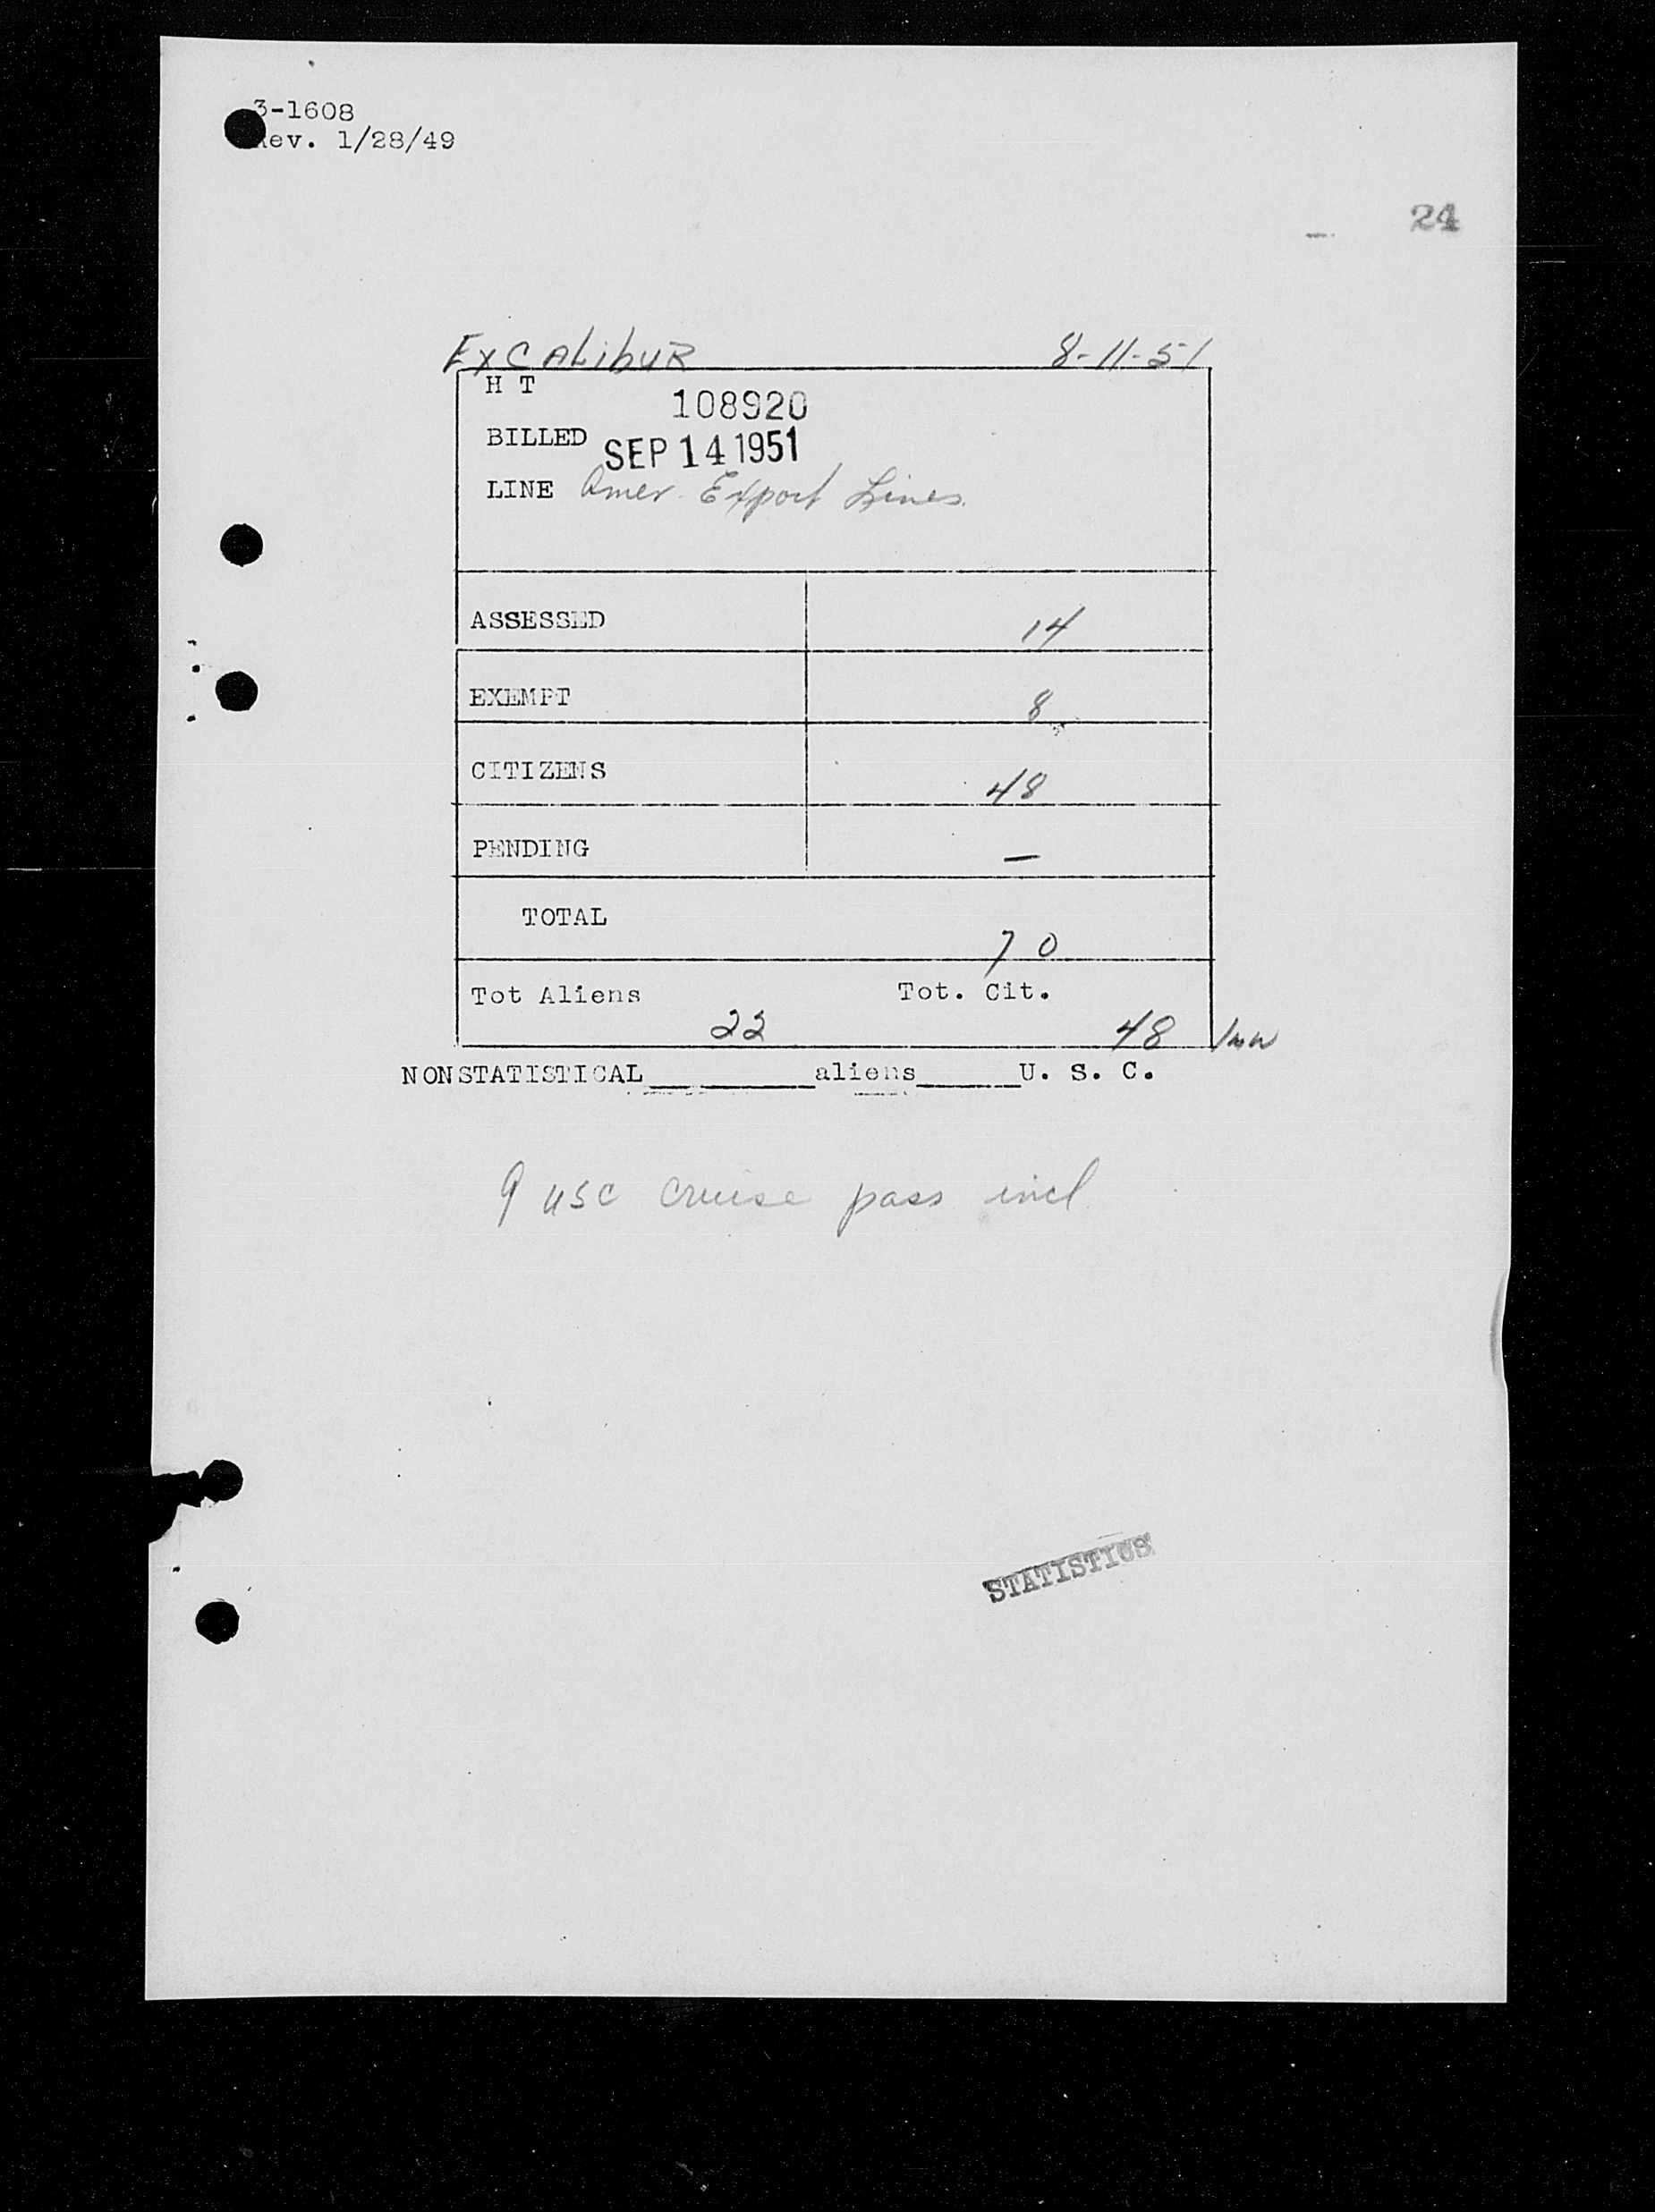 3-1608
Rev. 1/28/49
24
EXCALibUR 8-11-51
H T 108920
BILLED SEP 14 1951
LINE Amer. Export Lines.
ASSESSED 14
EXEMPT 8
CITIZENS 48
PENDING —
TOTAL 70
Tot Aliens 22 Tot. Cit. 48
NONSTATISTICAL__________aliens______U. S. C.
9 USC cruise pass incl
STATISTICS